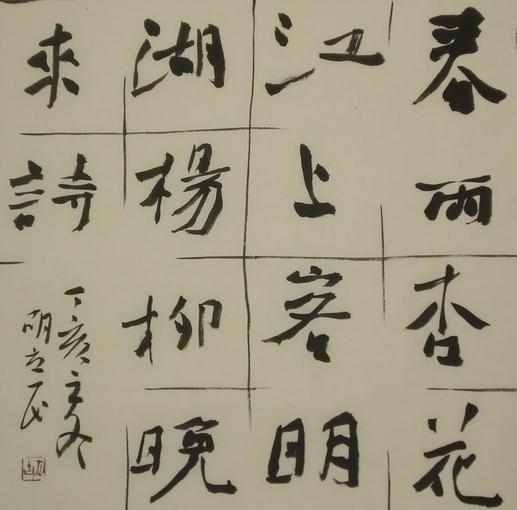 春雨杏花
江上客明
湖楊柳晚
來詩
丁亥之冬